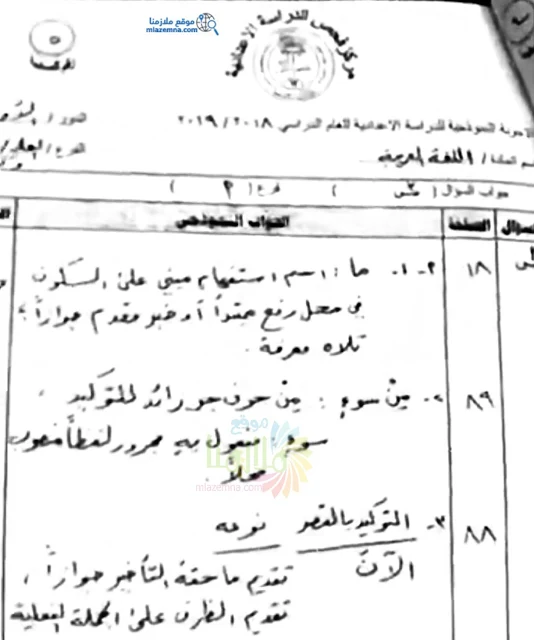 موقع ملازمنا
mlazemna.com
مركز فحص الدراسة الاعدادية
الاجوبة النموذجية للدراسة الاعدادية للعام الدراسي ٢٠١٨ / ٢٠١٩
الدور /
اسم المادة / اللغة العربية
الفرع /
جواب السؤال ( ) فرع ( )
الصفحة
الجواب النموذجي
١٨
٢-١- ما : اسم استفهام مبني على السكون
في محل رفع مبتدأ أو خبر مقدم جوازاً ؛
تلاه معرفة .
٨٩
٢- مِنْ سوءٍ : مِن حرف جر زائد للتوكيد ،
سوءٍ : مفعول به مجرور لفظاً منصوب
محلاً .
موقع
ملازمنا
mlazemna.com
٨٨
٣- التوكيد بالقصر نوعه
الآنَ تقديم ما حقه التأخير جوازاً ،
تقديم الظرف على الجملة الفعلية